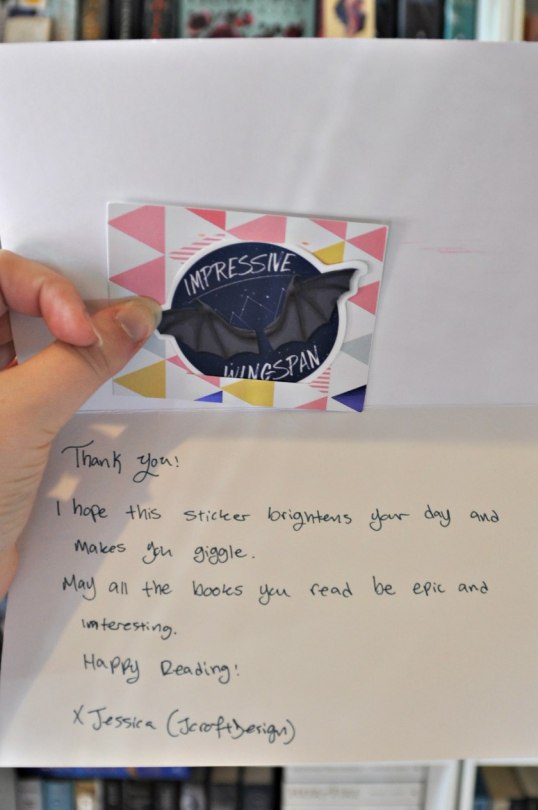 IMPRESSIVE
WINGSPAN
Thank you!
I hope this sticker brightens your day and
makes you giggle.
May all the books you read be epic and
interesting.
Happy Reading!
X Jessica (JcroftDesign)